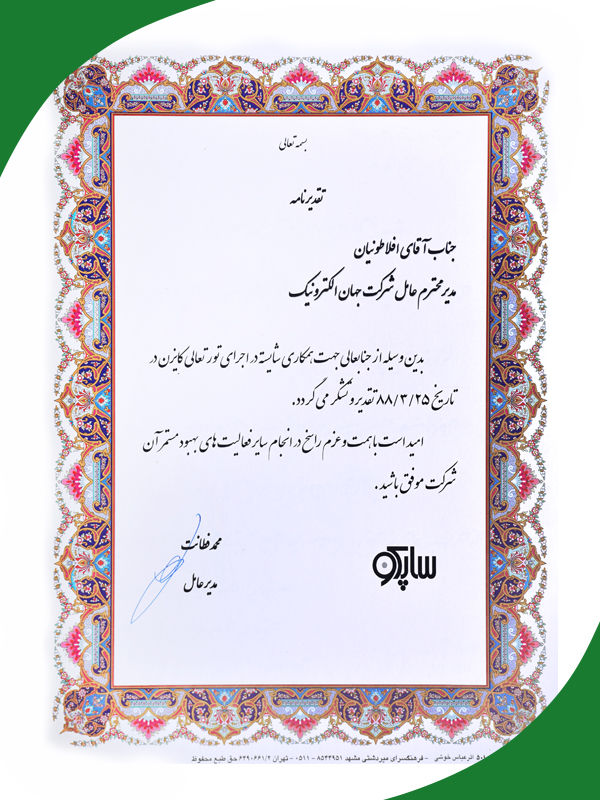 بسمه تعالی
تقدیرنامه
جناب آقای افلاطونیان
مدیر محترم عامل شرکت جهان الکترونیک
بدین وسیله از جنابعالی جهت همکاری شایسته در اجرای تور تعالی کایزن در
تاریخ ۸۸/۳/۲۵ تقدیر و تشکر می گردد.
امید است با همت و عزم راسخ در انجام سایر فعالیت های بهبود مستمر آن
شرکت موفق باشید .
محمد فطانت
مدیر عامل
ساپکو
اثر عباس خوشی - فرهنگسرای میردشتی مشهد ۸۵۴۴۹۵۱ - ۰۵۱۱ - تهران ۶۴۹۰۶۶۱/۲ حق طبع محفوظ